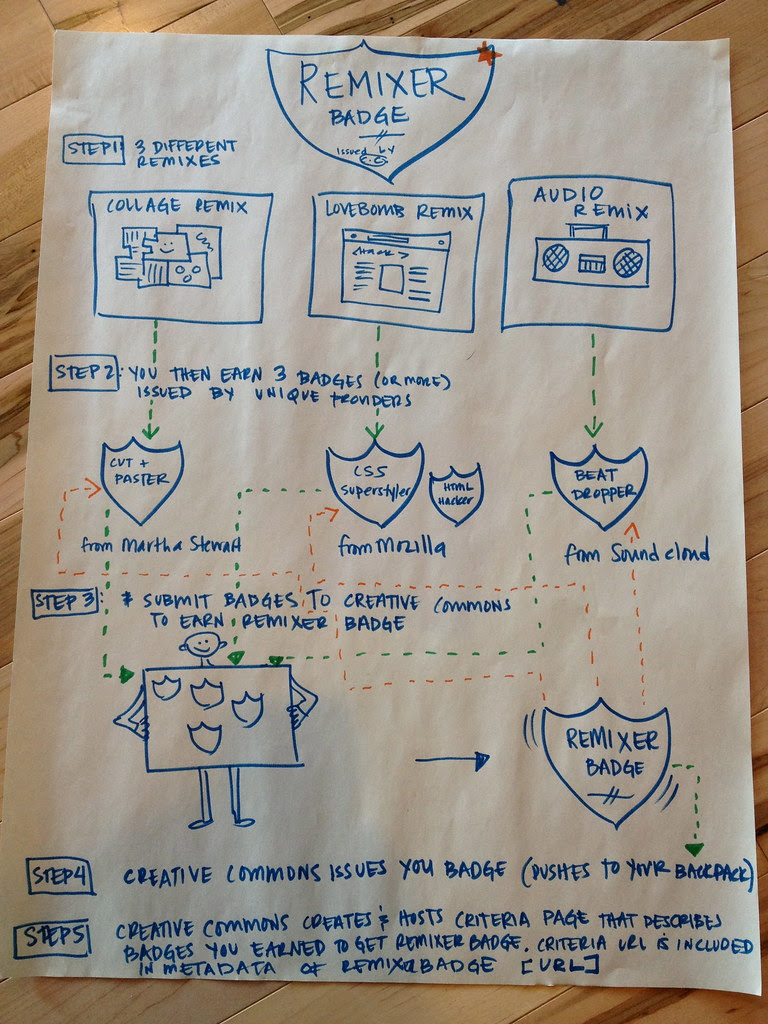 REMIXER
BADGE
issued by
CC
STEP 1: 3 DIFFERENT
REMIXES
COLLAGE REMIX
LOVEBOMB REMIX
<HACK>
AUDIO
REMIX
STEP 2: YOU THEN EARN 3 BADGES (OR MORE)
ISSUED BY UNIQUE PROVIDERS
CUT +
PASTER
CSS
Superstyler
HTML
Hacker
BEAT
DROPPER
from Martha Stewart
from Mozilla
from Sound cloud
STEP 3: * SUBMIT BADGES TO CREATIVE COMMONS
TO EARN REMIXER BADGE
REMIXER
BADGE
STEP 4 CREATIVE COMMONS ISSUES YOU BADGE (PUSHES TO YOUR BACKPACK)
STEP 5 CREATIVE COMMONS CREATES & HOSTS CRITERIA PAGE THAT DESCRIBES
BADGES YOU EARNED TO GET REMIXER BADGE. CRITERIA URL IS INCLUDED
IN METADATA OF REMIXER BADGE [URL]